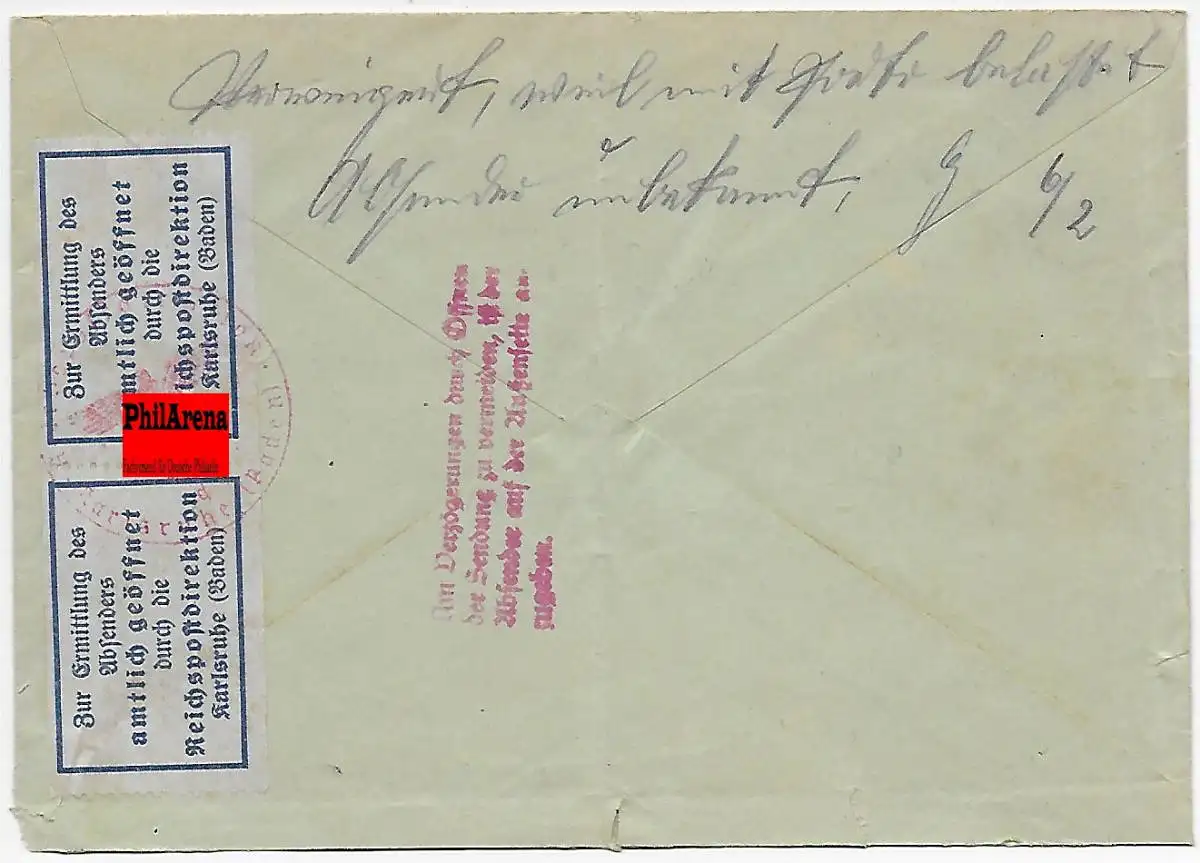 Verweigert, weil mit Porto belastet
Absender unbekannt, 6/2
Zur Ermittlung des
Absenders
amtlich geöffnet
durch die
Reichspostdirektion
Karlsruhe (Baden)
Zur Ermittlung des
Absenders
mtlich geöffnet
durch die
ichspostdirektion
Karlsruhe (Baden)
PhilArena
Um Verzögerungen durch Öffnen
der Sendung zu vermeiden, ist der
Absender auf der Außenseite an-
zugeben.
Karlsruhe (Baden)